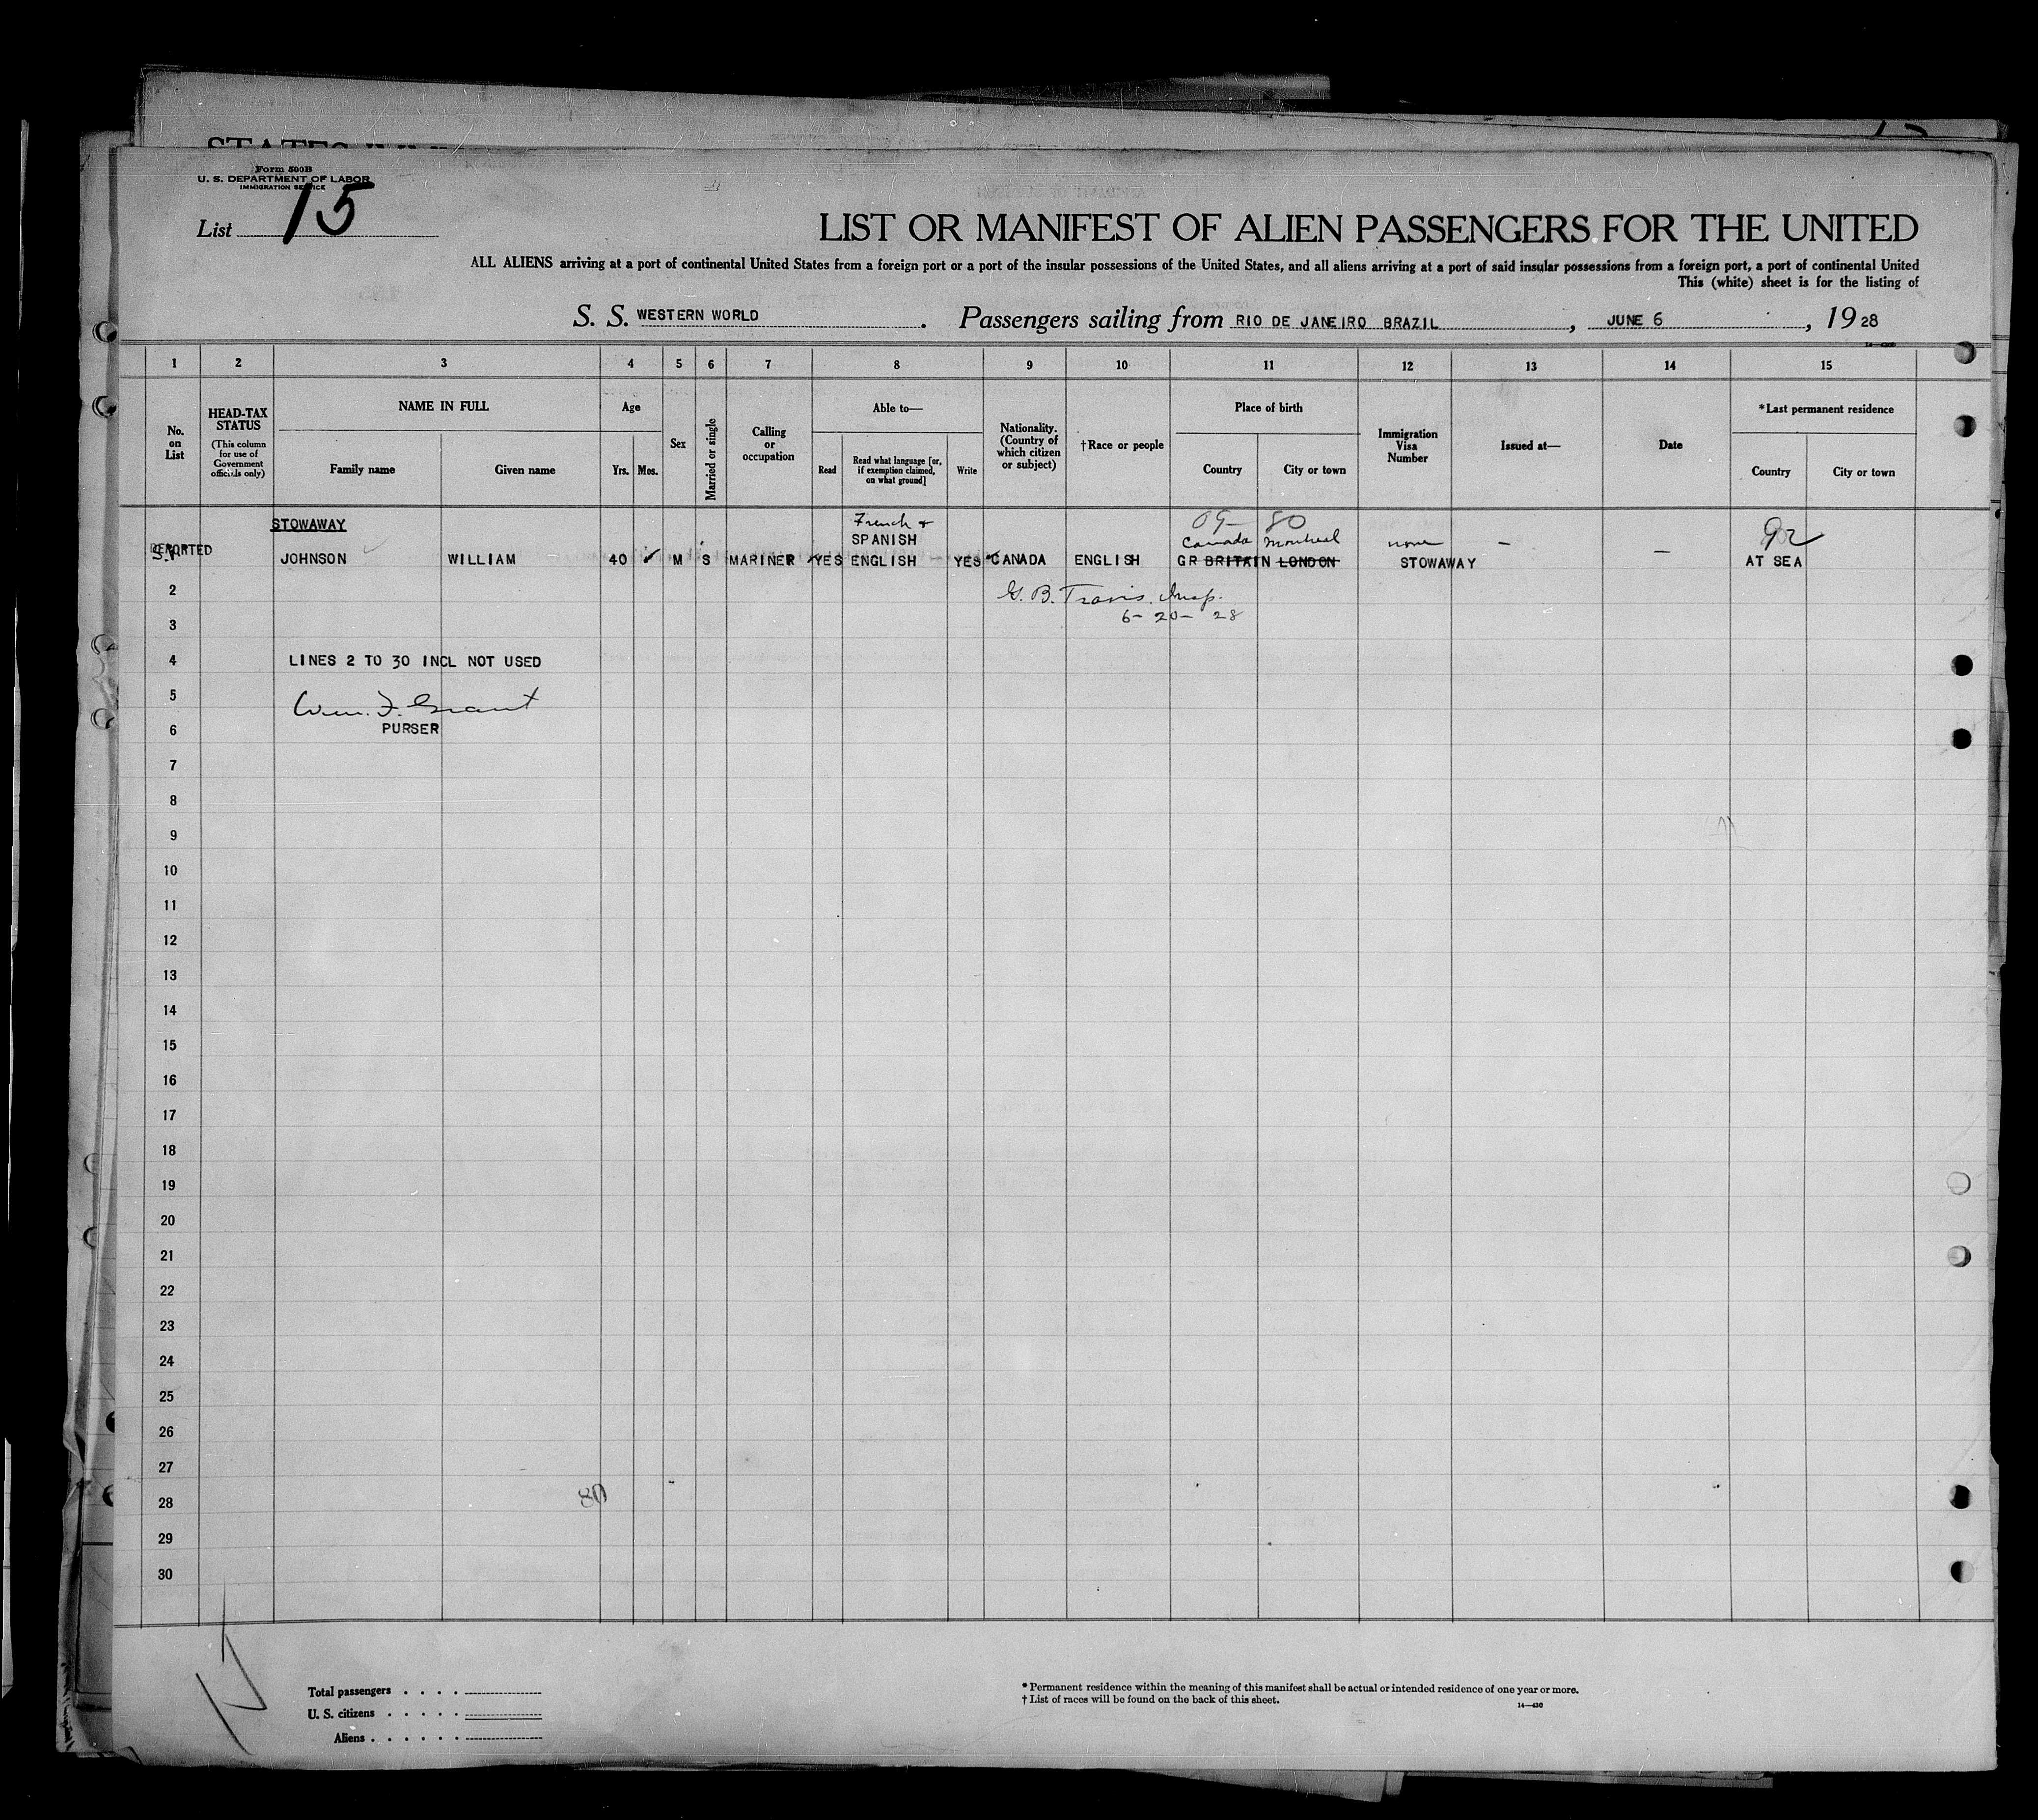 Form 500B
U. S. DEPARTMENT OF LABOR
IMMIGRATION SERVICE
List 15
LIST OR MANIFEST OF ALIEN PASSENGERS FOR THE UNITED
ALL ALIENS arriving at a port of continental United States from a foreign port or a port of the insular possessions of the United States, and all aliens arriving at a port of said insular possessions from a foreign port, a port of continental United
This (white) sheet is for the listing of
S. S. WESTERN WORLD . Passengers sailing from RIO DE JANEIRO BRAZIL , JUNE 6 , 1928
1 2 3 4 5 6 7 8 9 10 11 12 13 14 15
No. on List
HEAD-TAX STATUS
(This column for use of Government officials only)
NAME IN FULL
Family name
Given name
Age
Yrs.
Mos.
Sex
Married or single
Calling or occupation
Able to—
Read
Read what language [or, if exemption claimed, on what ground]
Write
Nationality. (Country of which citizen or subject)
†Race or people
Place of birth
Country
City or town
Immigration Visa Number
Issued at—
Date
*Last permanent residence
Country
City or town
STOWAWAY French + 09— 80 92
DEPORTED SPANISH Canada Montreal none — —
JOHNSON WILLIAM 40 ✓ M S MARINER YES ENGLISH YES CANADA ENGLISH GR BRITAIN LONDON STOWAWAY AT SEA
2 G. B. Travis. Insp.
3 6-20-28
4 LINES 2 TO 30 INCL NOT USED
5 Wm. F. Grant
6 PURSER
7
8
9
10
11
12
13
14
15
16
17
18
19
20
21
22
23
24
25
26
27
28 80
29
30
Total passengers . . . .
U. S. citizens . . . . .
Aliens . . . . . .
* Permanent residence within the meaning of this manifest shall be actual or intended residence of one year or more.
† List of races will be found on the back of this sheet.
14—430